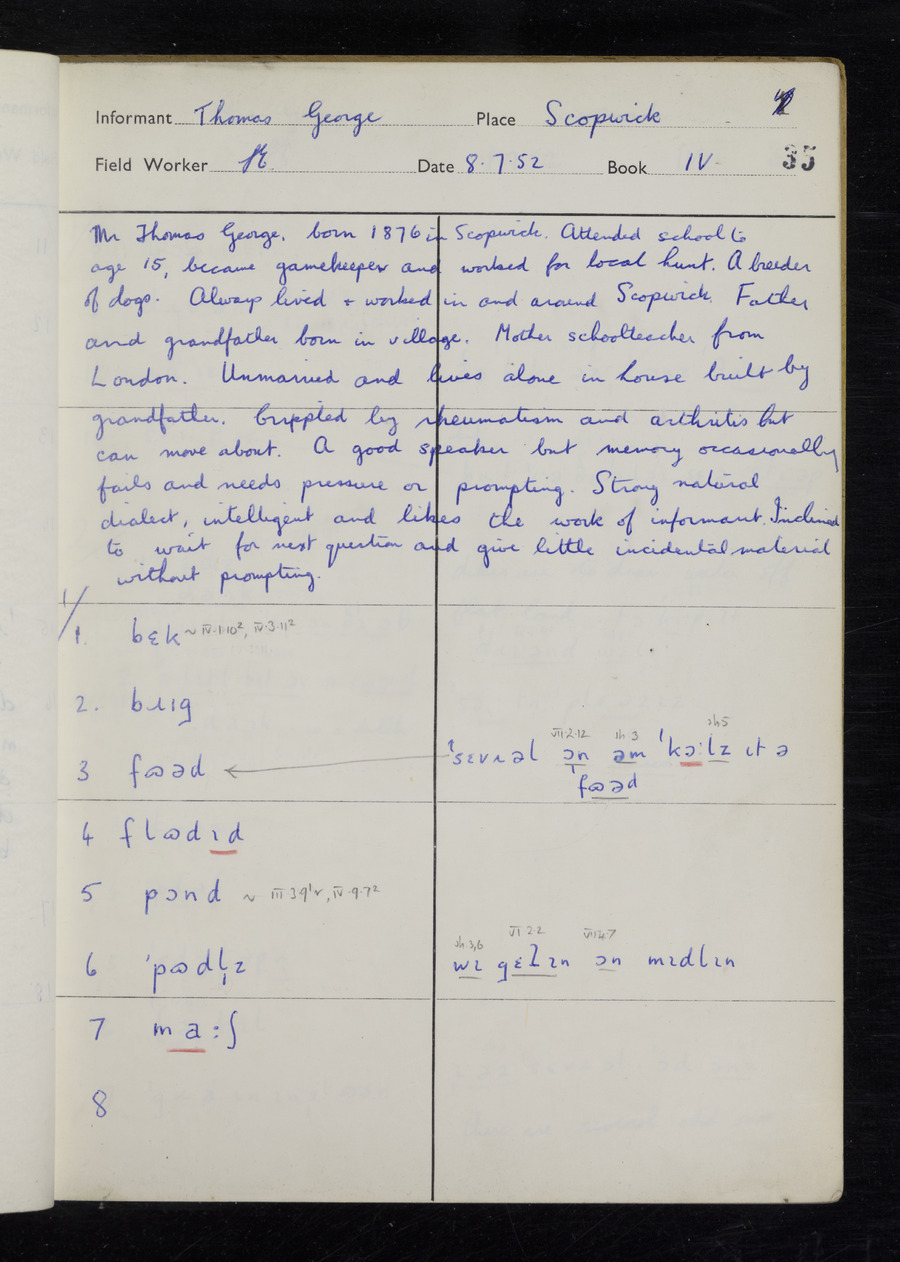 Informant Thomas George Place Scopwick
Field Worker Date 8.7.52 Book IV 35
Mr Thomas George, born 1876 in Scopwick. Attended school to
age 15, became gamekeeper and worked for local hunt. A breeder
of dogs. Always lived + worked in and around Scopwick. Father
and grandfather born in village. Mother schoolteacher from
London. Unmarried and lives alone in house built by
grandfather. Crippled by rheumatism and arthritis but
can move about. A good speaker but memory occasionally
fails and needs pressure or prompting. Strong natural
dialect, intelligent and likes the work of informant. Inclined
to wait for next question and give little incidental material
without prompting.
1/
1. bɛk ~ IV.1.10², IV.3.11²
2. bɹɪg
VII.2.12 3 5
3 fɷəd ˈsɛvɹəl ɔn əm ˈkɔ:lz ɪt ə
fɷəd
4 flɷdɪd
5 pɔnd ~ III 3 9, IV.9.7²
3,6 VI 2.2
6 ˈpɷdl̩z wɪ gɛʔɪn ɔn mɪdlɪn
7 ma:ʃ
8